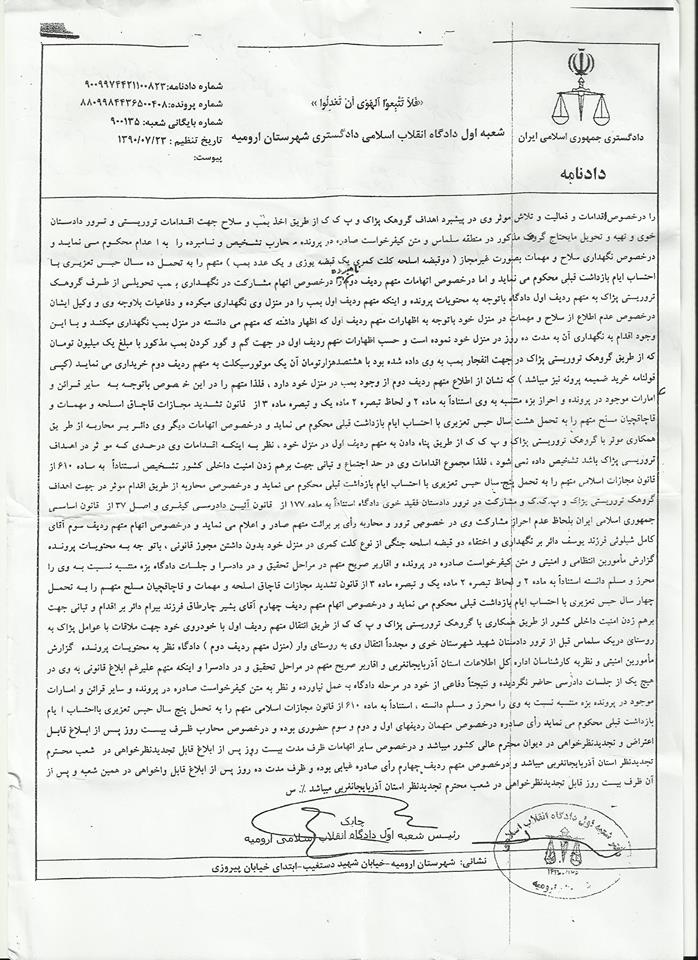 شماره دادنامه:۹۰۰۹۹۷۴۴۲۱۱۰۰۸۲۳
شماره پرونده:۸۸۰۹۹۸۴۴۳۶۵۰۰۴۰۸
شماره بایگانی شعبه: ۹۰۰۱۳۵
تاریخ تنظیم : ۱۳۹۰/۰۷/۲۳
پیوست:
«فَلا تَتَّبِعوا الهَوی اَن تَعدِلوا»
شعبه اول دادگاه انقلاب اسلامی دادگستری شهرستان ارومیه
دادگستری جمهوری اسلامی ایران
دادنامه
را درخصوص اقدامات و فعالیت و تلاش موثر وی در پیشبرد اهداف گروهک پژاک و پ ک ک از طریق اخذ بمب و سلاح جهت اقدامات تروریستی و ترور دادستان
خوی و تهیه و تحویل مایحتاج گروهک مذکور در منطقه سلماس و متن کیفرخواست صادره در پرونده محارب تشخیص و نامبرده را به اعدام محکوم می نماید و
درخصوص نگهداری سلاح و مهمات بصورت غیرمجاز (دوقبضه اسلحه کلت کمری یک قبضه یوزی و یک عدد بمب ) متهم را به تحمل ده سال حبس تعزیری با
احتساب ایام بازداشت قبلی محکوم می نماید و اما درخصوص اتهامات متهم ردیف دوم نامبرده را درخصوص اتهام مشارکت در نگهداری بمب تحویلی از طرف گروهک
تروریستی پژاک به متهم ردیف اول دادگاه باتوجه به محتویات پرونده و اینکه متهم ردیف اول بمب را در منزل وی نگهداری میکرده و دفاعیات بلاوجه وی و وکیل ایشان
درخصوص عدم اطلاع از سلاح و مهمات در منزل خود باتوجه به اظهارات متهم ردیف اول که اظهار داشته که متهم می دانسته در منزل بمب نگهداری میکند و با این
وجود اقدام به نگهداری آن به مدت ده روز در منزل خود نموده است و حسب اظهارات متهم ردیف اول در جهت گم و گور کردن بمب مذکور با مبلغ یک میلیون تومان
که از طریق گروهک تروریستی پژاک در جهت انفجار بمب به وی داده شده بود با هشتصدهزارتومان آن یک موتورسیکلت به متهم ردیف دوم خریداری می نماید (کپی
قولنامه خرید ضمیمه پرونه نیز میباشد ) که نشان از اطلاع متهم ردیف دوم از وجود بمب در منزل خود دارد ، فلذا متهم را در این خصوص باتوجه به سایر قرائن و
امارات موجود در پرونده و احراز بزه منتسبه به وی استناداً به ماده ۲ و لحاظ تبصره ۲ ماده یک و تبصره ماده ۳ از قانون تشدید مجازات قاچاق اسلحه و مهمات و
قاچاقچیان مسلح متهم را به تحمل هشت سال حبس تعزیری با احتساب ایام بازداشت قبلی محکوم می نماید و درخصوص اتهامات دیگر وی دائر بر محاربه از طریق
همکاری موثر با گروهک تروریستی پژاک و پ ک ک از طریق پناه دادن به متهم ردیف اول در منزل خود ، نظر به اینکه اقدامات وی درحدی که موثر در اهداف
تروریستی پژاک باشد تشخیص داده نمی شود ، فلذا مجموع اقدامات وی در حد اجتماع و تبانی جهت برهم زدن امنیت داخلی کشور تشخیص استناداً به ماده ۶۱۰ از
قانون مجازات اسلامی متهم را به تحمل پنج سال حبس تعزیری با احتساب ایام بازداشت قبلی محکوم می نماید و درخصوص محاربه از طریق اقدام موثر در جهت اهداف
گروهک تروریستی پژاک و پ.ک.ک و مشارکت در ترور دادستان فقید خوی دادگاه استناداً به ماده ۱۷۷ از قانون آئین دادرسی کیفری و اصل ۳۷ از قانون اساسی
جمهوری اسلامی ایران بلحاظ عدم احراز مشارکت وی در خصوص ترور و محاربه رأی بر برائت متهم صادر و اعلام می نماید و درخصوص اتهام متهم ردیف سوم آقای
کامل شیلوئی فرزند یوسف دائر بر نگهداری و اختفاء دو قبضه اسلحه جنگی از نوع کلت کمری در منزل خود بدون داشتن مجوز قانونی ، باتوجه به محتویات پرونده
گزارش مأمورین انتظامی و امنیتی و متن کیفرخواست صادره در پرونده و اقاریر صریح متهم در مراحل تحقیق و در دادسرا و جلسات دادگاه بزه منتسبه نسبت به وی را
محرز و مسلم دانسته استناداً به ماده ۲ و لحاظ تبصره ۲ ماده یک و تبصره ماده ۳ از قانون تشدید مجازات قاچاق اسلحه و مهمات و قاچاقچیان مسلح متهم را به تحمل
چهار سال حبس تعزیری با احتساب ایام بازداشت قبلی محکوم می نماید و درخصوص اتهام متهم ردیف چهارم آقای بشیر چارطاق فرزند بیرام دائر بر اقدام و تبانی جهت
برهم زدن امنیت داخلی کشور از طریق همکاری با گروهک تروریستی پژاک و پ ک ک از طریق انتقال متهم ردیف اول با خودروی خود جهت ملاقات با عوامل پژاک به
روستای دریک سلماس قبل از ترور دادستان شهید شهرستان خوی و مجدداً انتقال وی به روستای وار (منزل متهم ردیف دوم ) دادگاه نظر به محتویات پرونده گزارش
مأمورین امنیتی و نظریه کارشناسان اداره کل اطلاعات استان آذربایجانغربی و اقاریر صریح متهم در مراحل تحقیق و در دادسرا و اینکه متهم علیرغم ابلاغ قانونی به وی در
هیچ یک از جلسات دادرسی حاضر نگردیده و نتیجتاً دفاعی از خود در مرحله دادگاه به عمل نیاورده و نظر به متن کیفرخواست صادره در پرونده و سایر قرائن و امارات
موجود در پرونده بزه منتسبه نسبت به وی را محرز و مسلم دانسته ، استناداً به ماده ۶۱۰ از قانون مجازات اسلامی متهم را به تحمل پنج سال حبس تعزیری بااحتساب ایام
بازداشت قبلی محکوم می نماید رأی صادره درخصوص متهمان ردیفهای اول و دوم و سوم حضوری بوده و درخصوص محارب ظرف بیست روز پس از ابلاغ قابل
اعتراض و تجدیدنظرخواهی در دیوان محترم عالی کشور میباشد و درخصوص سایر اتهامات ظرف مدت بیست روز پس از ابلاغ قابل تجدیدنظرخواهی در شعب محترم
تجدیدنظر استان آذربایجانغربی میباشد و درخصوص متهم ردیف چهارم رأی صادره غیابی بوده و ظرف مدت ده روز پس از ابلاغ قابل واخواهی در همین شعبه و پس از
آن ظرف بیست روز قابل تجدیدنظرخواهی در شعب محترم تجدیدنظر استان آذربایجانغربی میباشد ٪. س
چابک
رئیس شعبه اول دادگاه انقلاب اسلامی ارومیه
نشانی: شهرستان ارومیه-خیابان شهید دستغیب-ابتدای خیابان پیروزی